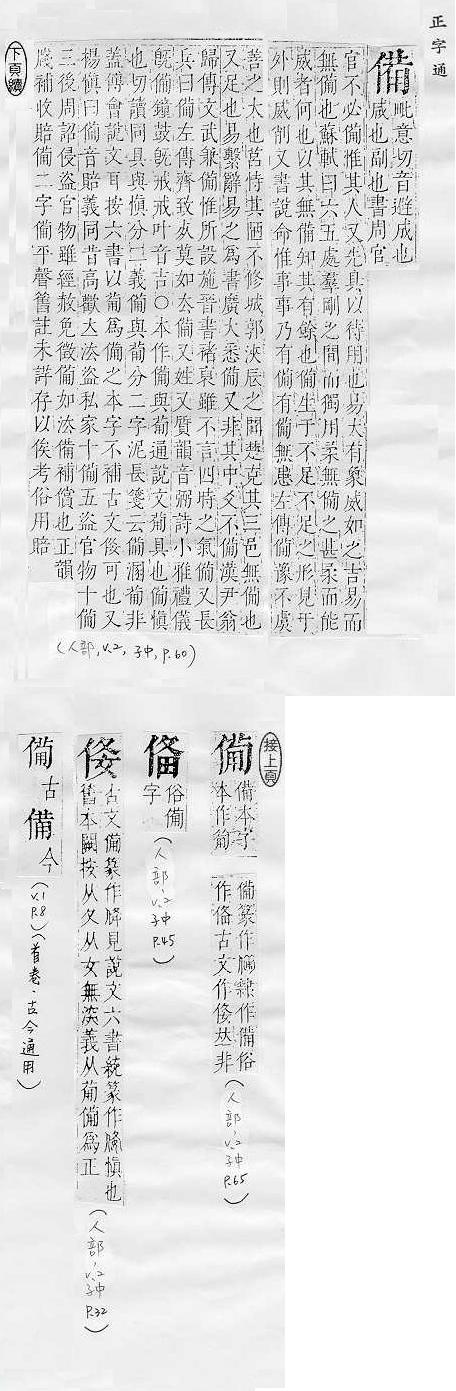 正字通
備
毗意切音避咸也
咸也副也書周官
官不必備惟其人又先具以待用也易大有象威如之吉易而
無備也蘇軾曰六五處羣剛之間而獨用柔無備之甚柔而能
威者何也以其無備知其有餘也備生于不足不足之形見于
外則威削又書說命惟事事乃有備有備無患左傳備豫不虞
善之大也莒恃其陋不修城郭浹辰之間楚克其三邑無備也
又足也易繫辭易之爲書廣大悉備又非其中爻不備漢尹翁
歸傳文武兼備惟所設施晉書褚裒雖不言四時之氣備又長
兵曰備左傳齊致夾莫如去備又姓又質韻音弼詩小雅禮儀
旣備鐘鼓旣戒戒叶音吉○本作僃與葡通說文葡具也僃愼
也切讀同具與愼分二義僃與葡分二字泥長箋云僃溷葡非
葢傅會說文耳按六書以葡爲備之本字不補古文俻可也又
楊愼曰備音賠義同昔高歡立法盜私家十備五盜官物十備
三後周詔侵盜官物雖經赦免徵備如法備補償也正韻
賤補收賠備二字備平聲舊註未詳存以俟考俗用賠
下頁續
(人部,V.2,子中,P.60)
接上頁
僃
備本字
本作葡
備篆作僃隸作備俗
作俻古文作㑗𠀤非
(人部,V.2子中P.65)
俻
俗備
字
(人部,V.2子中P.45)
古文備篆作見說文六書統篆作愼也
舊本闕按从夂从女無決義从葡備爲正
(人部,V.2子中P.32)
僃古備今
(V.1P.8)(首卷·古今通用)